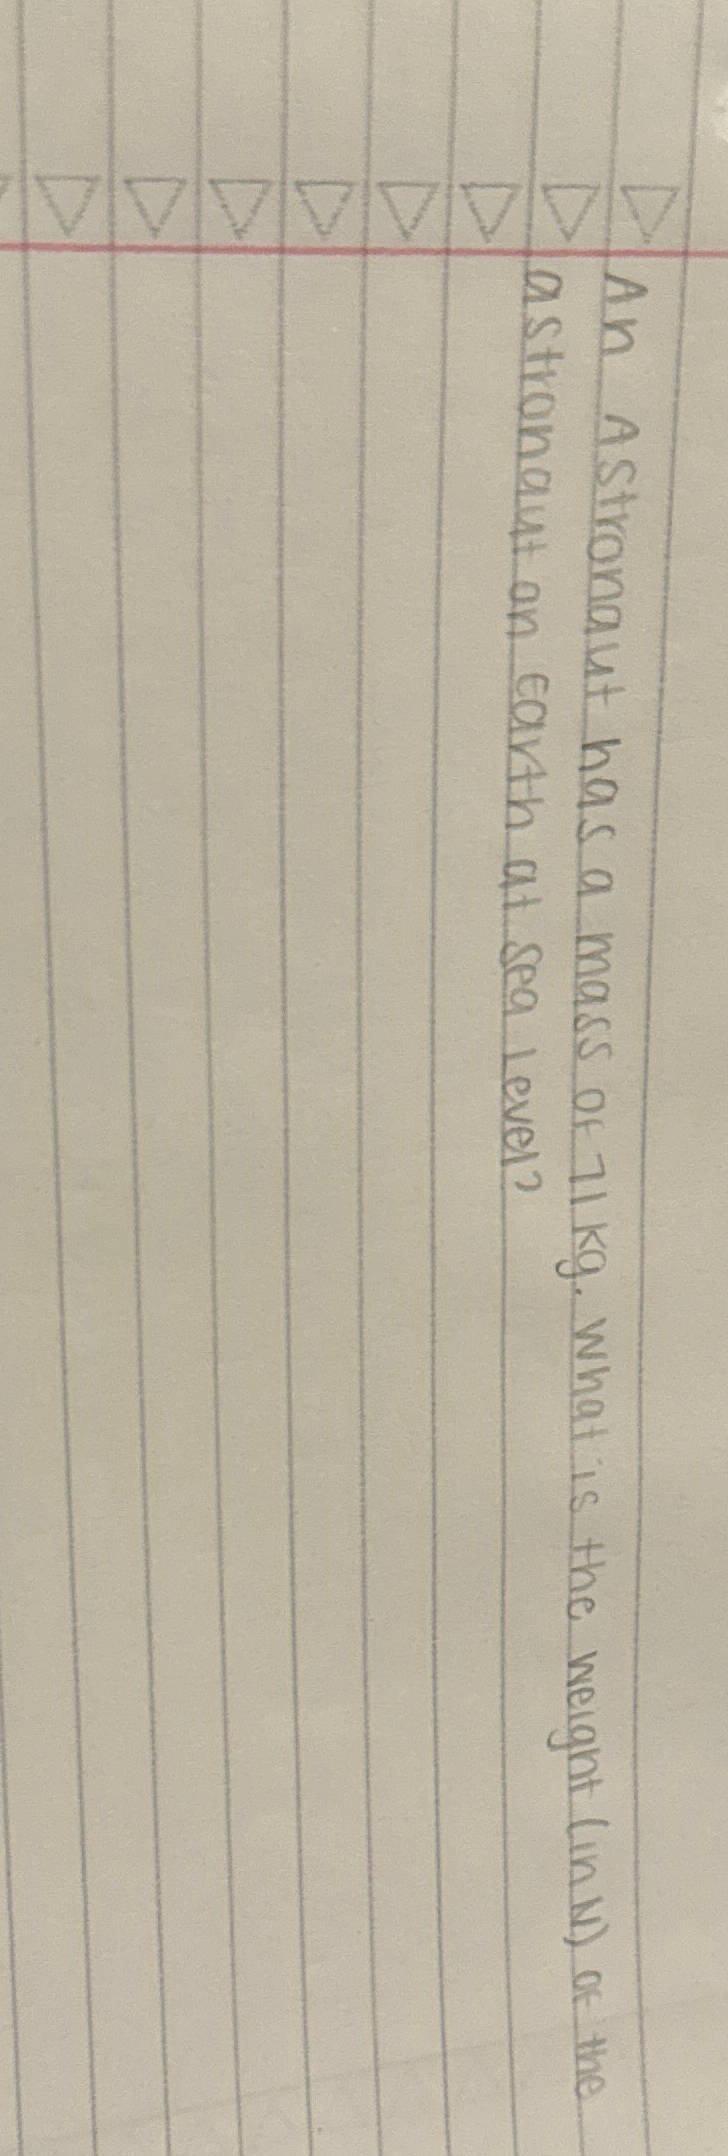 An Astronaut has a mass of 71 kg. What is the weight (in N) of the
astronaut on Earth at sea level?